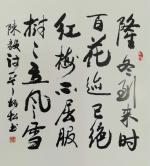 隆冬到来时
百花迹已绝
红梅不屈服
树树立风雪
陈毅诗